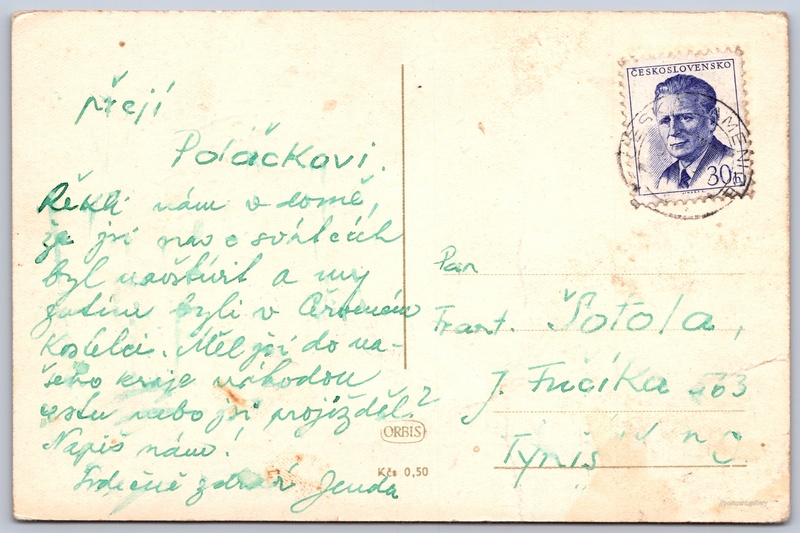 přejí
Poláčkovi.
Řekli nám v domě,
že jsi nás o svátcích
byl navštívit a my
zatím byli v Červeném
Kostelci. Měl jsi do na-
šeho kraje náhodou
cestu nebo jsi projížděl?
Napiš nám!
Srdečně zdraví Jenda
ČESKOSLOVENSKO
30h
Pan
Frant. Šotola,
J. Fučíka 563
Týniště n O.
ORBIS
Kčs 0,50